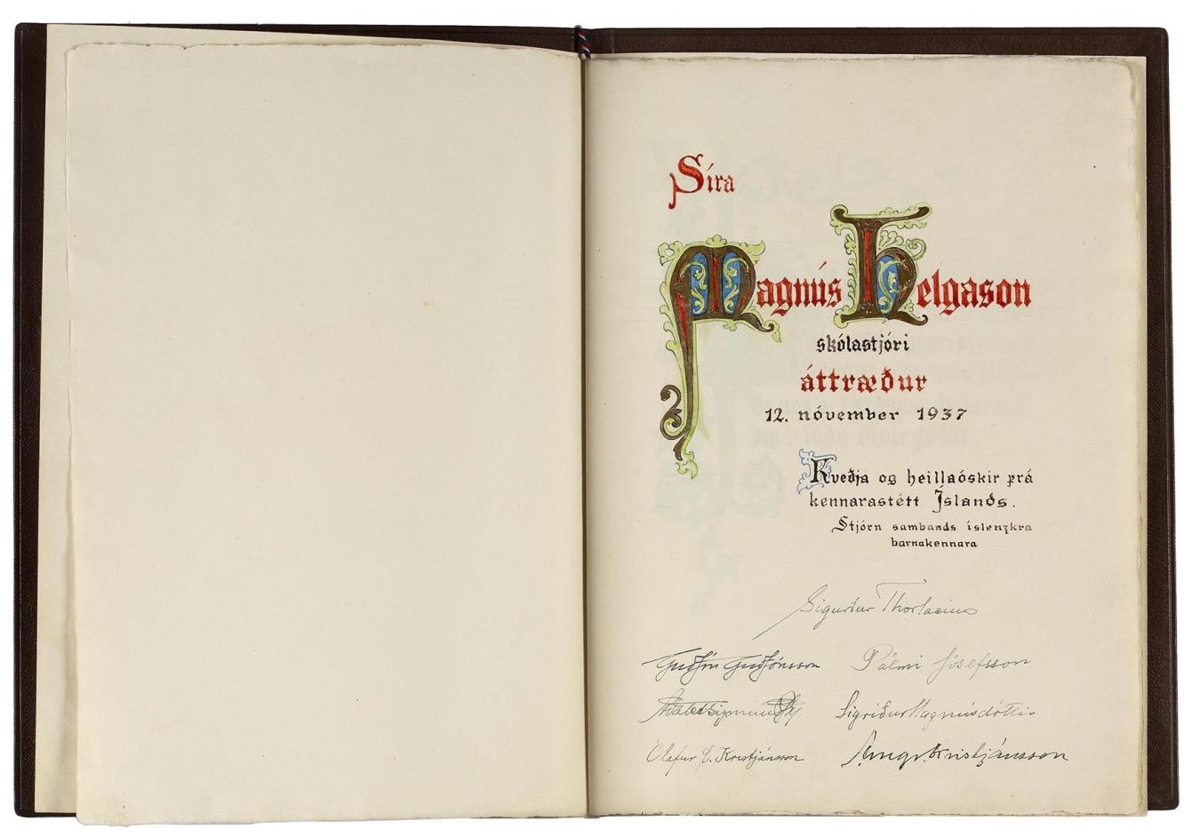 Síra
Magnús Helgason
skólastjóri
áttræður
12. nóvember 1937
Kveðja og heillaóskir frá
kennarastétt Íslands.
Stjórn sambands íslenzkra
barnakennara
Sigurður Thorlacius
Guðjón Guðjónsson Pálmi Jósefsson
Sigríður Magnúsdóttir
Ólafur Þ. Kristjánsson Arngr. Kristjánsson